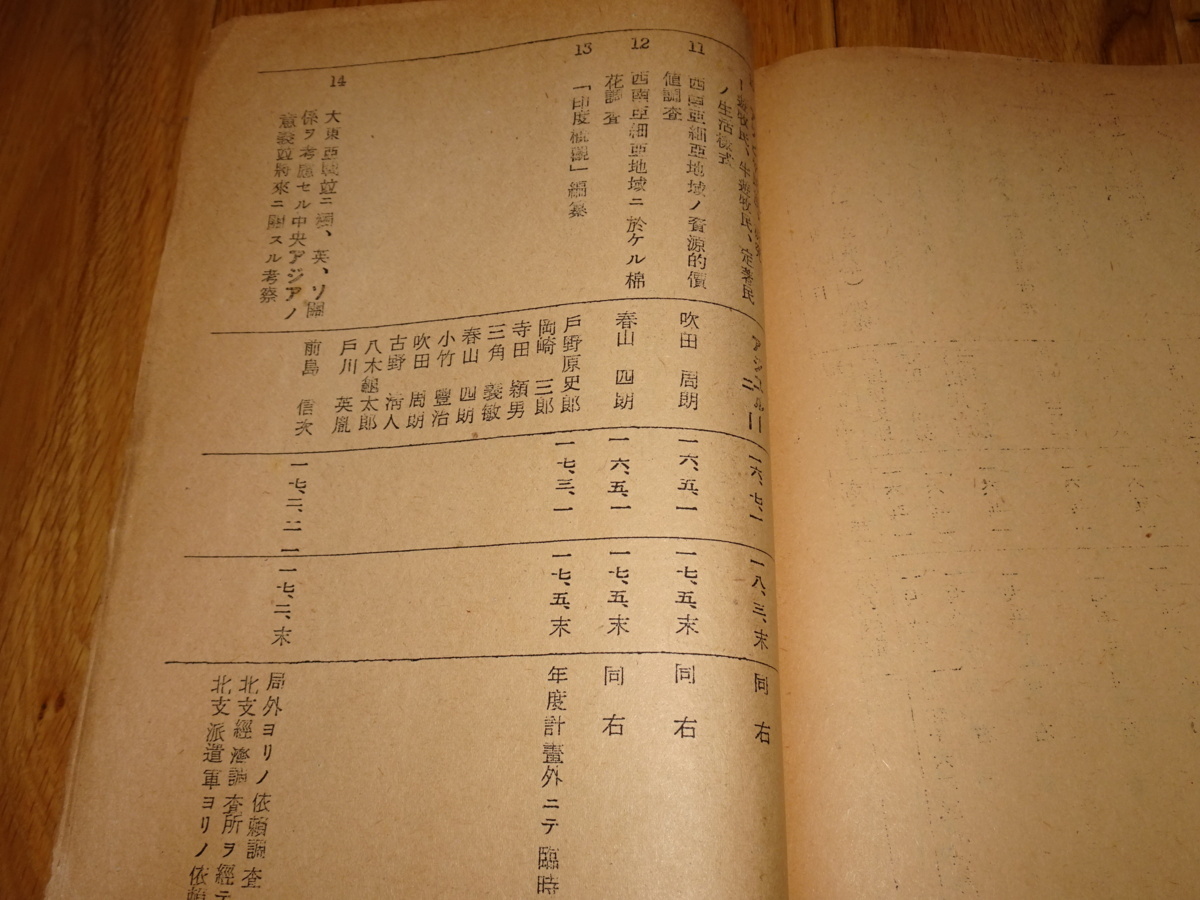 ー遊牧民、半遊牧民、定著民
ノ生活樣式
一六、七、一
一八、三、末
同右
11
西南亞細亞地域ノ資源的價
値調査
吹田 周朗
一六、五、一
一七、五、末
同右
12
西南亞細亞地域ニ於ケル棉
花調査
春山 四朗
一六、五、一
一七、五、末
同右
13
「印度概觀」編纂
戸野原史郎
岡崎 三郎
寺田 穎男
三角 義敏
春山 四朗
小竹 豐治
吹田 周朗
古野 淸人
八木龜太郎
戸川 英胤
一七、三、一
一七、五、末
年度計畫外ニテ臨時
14
大東亞圏並ニ獨、英、ソ關
係ヲ考慮セル中央アジアノ
意義並將來ニ關スル考察
前島 信次
一七、二、二
一七、二、末
局外ヨリノ依賴調査
北支經濟調査所ヲ經テ
北支派遣軍ヨリノ依賴